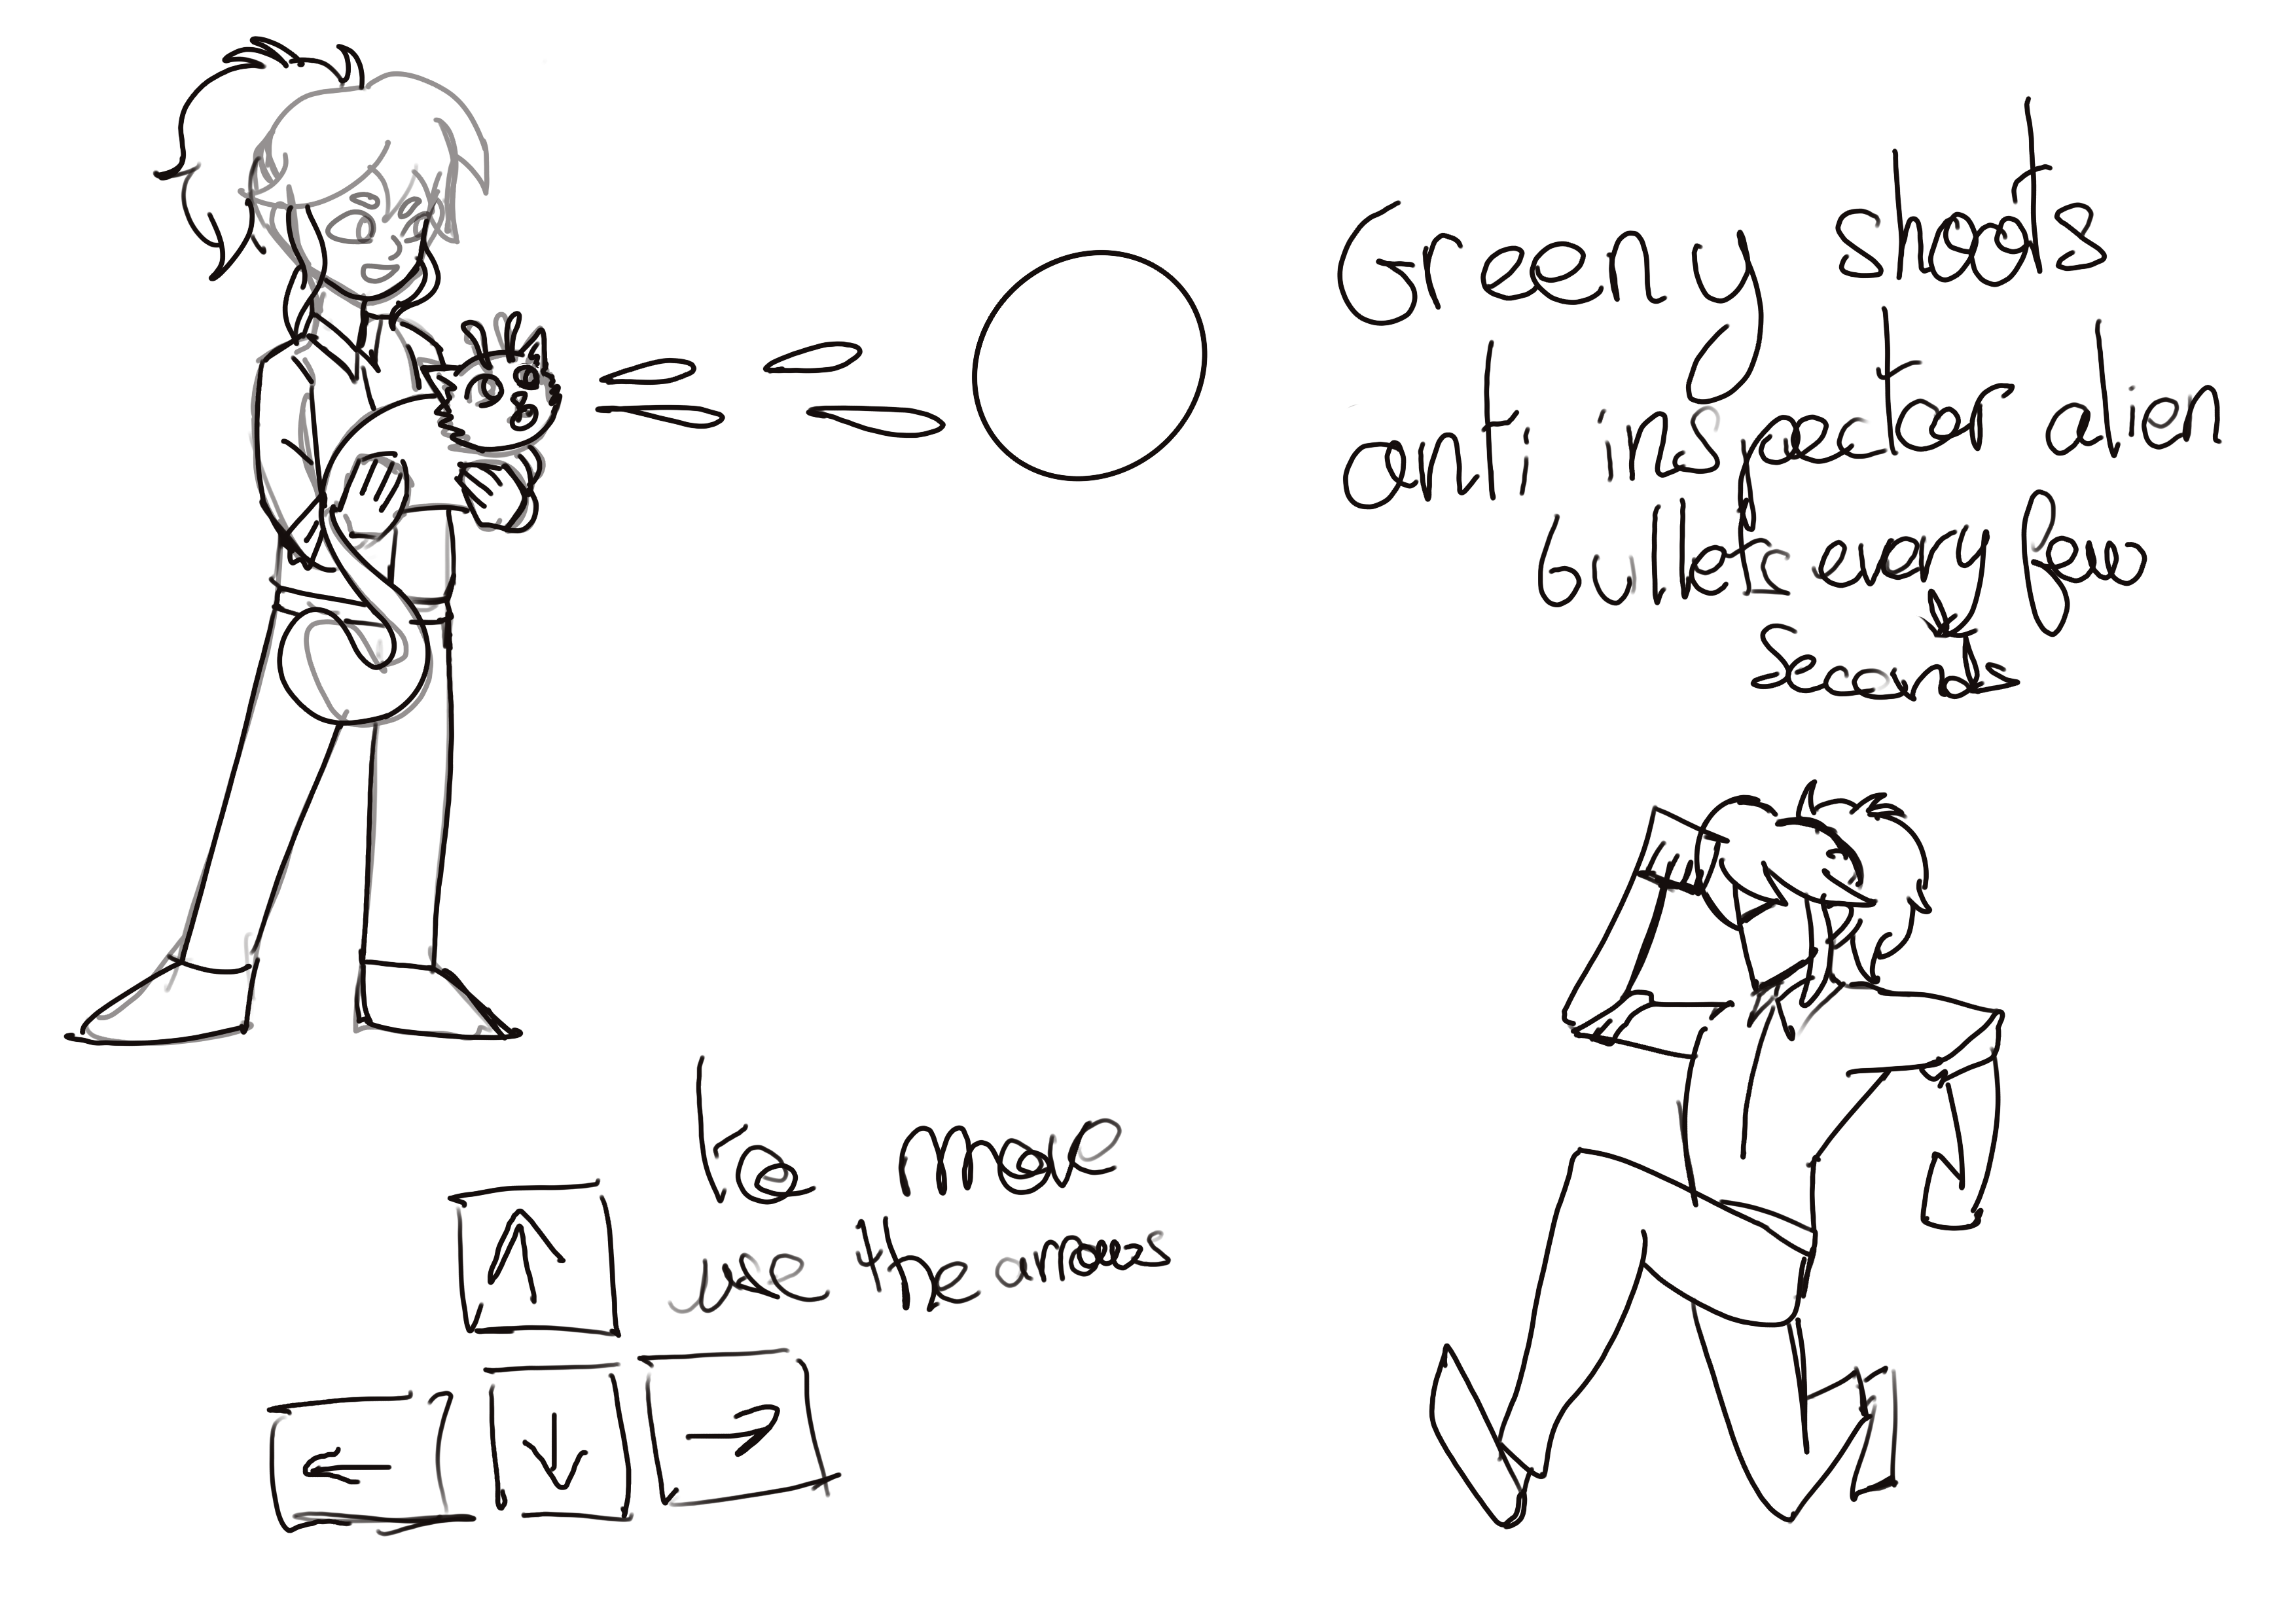 Greeny shoots
anti inspector alien
bullets every few
seconds
to move
use the arrows